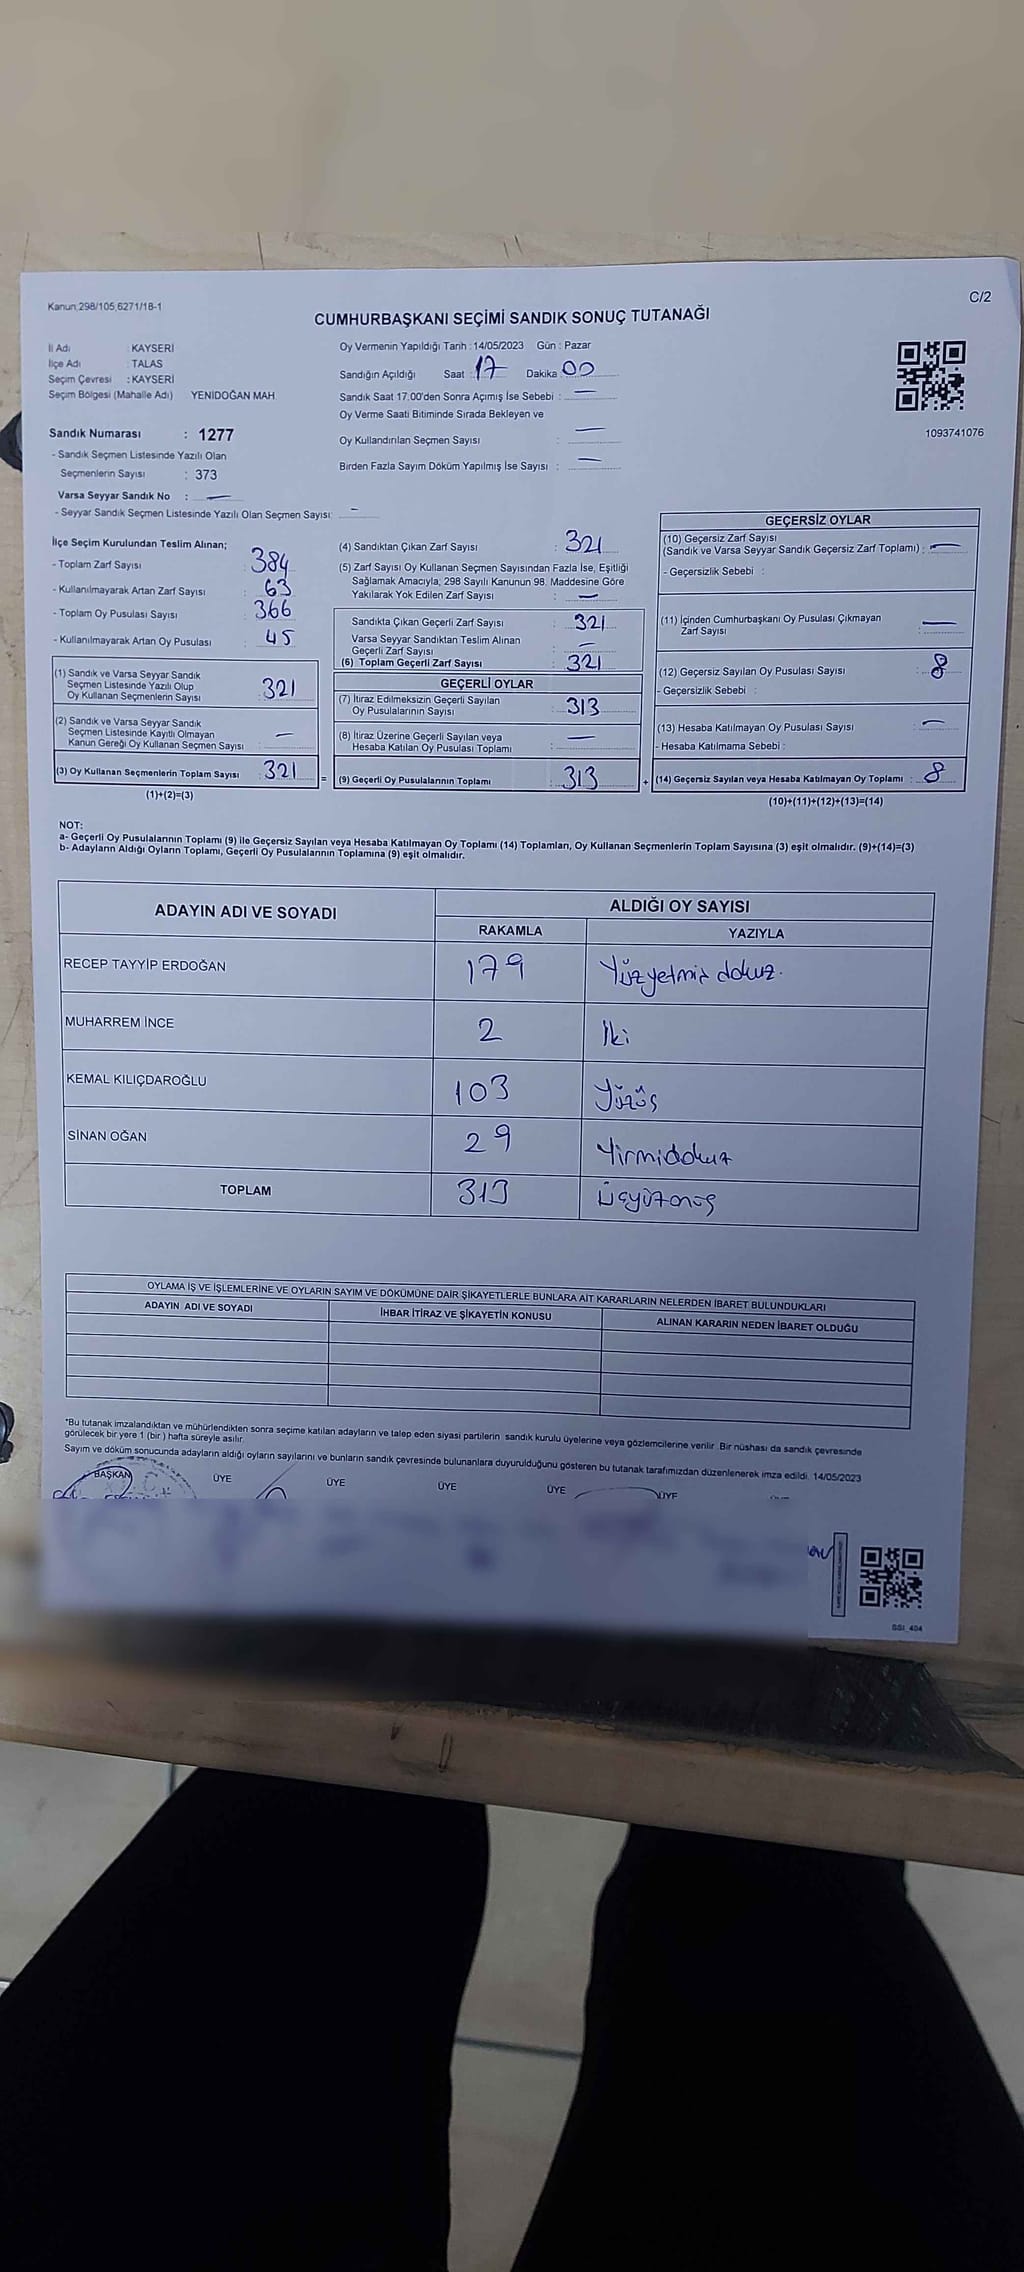 Kanun;298/105,6271/18-1
C/2
CUMHURBAŞKANI SEÇİMİ SANDIK SONUÇ TUTANAĞI
İl Adı : KAYSERİ
İlçe Adı : TALAS
Seçim Çevresi : KAYSERİ
Seçim Bölgesi (Mahalle Adı) YENİDOĞAN MAH.
Sandık Numarası : 1277
- Sandık Seçmen Listesinde Yazılı Olan
Seçmenlerin Sayısı : 373
Varsa Seyyar Sandık No : —
- Seyyar Sandık Seçmen Listesinde Yazılı Olan Seçmen Sayısı: -
Oy Vermenin Yapıldığı Tarih : 14/05/2023 Gün : Pazar
Sandığın Açıldığı Saat : 17 Dakika : 00
Sandık Saat 17.00'den Sonra Açımış İse Sebebi : —
Oy Verme Saati Bitiminde Sırada Bekleyen ve
Oy Kullandırılan Seçmen Sayısı : —
Birden Fazla Sayım Döküm Yapılmış İse Sayısı : —
1093741076
İlçe Seçim Kurulundan Teslim Alınan;
- Toplam Zarf Sayısı : 384
- Kullanılmayarak Artan Zarf Sayısı : 63
- Toplam Oy Pusulası Sayısı : 366
- Kullanılmayarak Artan Oy Pusulası : 45
(1) Sandık ve Varsa Seyyar Sandık
Seçmen Listesinde Yazılı Olup
Oy Kullanan Seçmenlerin Sayısı : 321
(2) Sandık ve Varsa Seyyar Sandık
Seçmen Listesinde Kayıtlı Olmayan
Kanun Gereği Oy Kullanan Seçmen Sayısı : —
(3) Oy Kullanan Seçmenlerin Toplam Sayısı : 321 =
(1)+(2)=(3)
(4) Sandıktan Çıkan Zarf Sayısı : 321
(5) Zarf Sayısı Oy Kullanan Seçmen Sayısından Fazla İse, Eşitliği
Sağlamak Amacıyla, 298 Sayılı Kanunun 98. Maddesine Göre
Yakılarak Yok Edilen Zarf Sayısı : —
Sandıkta Çıkan Geçerli Zarf Sayısı : 321
Varsa Seyyar Sandıktan Teslim Alınan
Geçerli Zarf Sayısı : —
(6) Toplam Geçerli Zarf Sayısı : 321
GEÇERLİ OYLAR
(7) İtiraz Edilmeksizin Geçerli Sayılan
Oy Pusulalarının Sayısı : 313
(8) İtiraz Üzerine Geçerli Sayılan veya
Hesaba Katılan Oy Pusulası Toplamı : —
(9) Geçerli Oy Pusulalarının Toplamı : 313 +
GEÇERSİZ OYLAR
(10) Geçersiz Zarf Sayısı
(Sandık ve Varsa Seyyar Sandık Geçersiz Zarf Toplamı) : —
- Geçersizlik Sebebi :
(11) İçinden Cumhurbaşkanı Oy Pusulası Çıkmayan
Zarf Sayısı : —
(12) Geçersiz Sayılan Oy Pusulası Sayısı : 8
- Geçersizlik Sebebi :
(13) Hesaba Katılmayan Oy Pusulası Sayısı : —
- Hesaba Katılmama Sebebi :
(14) Geçersiz Sayılan veya Hesaba Katılmayan Oy Toplamı : 8
(10)+(11)+(12)+(13)=(14)
NOT:
a- Geçerli Oy Pusulalarının Toplamı (9) ile Geçersiz Sayılan veya Hesaba Katılmayan Oy Toplamı (14) Toplamları, Oy Kullanan Seçmenlerin Toplam Sayısına (3) eşit olmalıdır. (9)+(14)=(3)
b- Adayların Aldığı Oyların Toplamı, Geçerli Oy Pusulalarının Toplamına (9) eşit olmalıdır.
ADAYIN ADI VE SOYADI
ALDIĞI OY SAYISI
RAKAMLA YAZIYLA
RECEP TAYYİP ERDOĞAN 179 Yüzyetmiş dokuz.
MUHARREM İNCE 2 İki
KEMAL KILIÇDAROĞLU 103 Yüzüç
SİNAN OĞAN 29 Yirmidokuz
TOPLAM 313 Üçyüzonüç
OYLAMA İŞ VE İŞLEMLERİNE VE OYLARIN SAYIM VE DÖKÜMÜNE DAİR ŞİKAYETLERLE BUNLARA AİT KARARLARIN NELERDEN İBARET BULUNDUKLARI
ADAYIN ADI VE SOYADI İHBAR İTİRAZ VE ŞİKAYETİN KONUSU ALINAN KARARIN NEDEN İBARET OLDUĞU
*Bu tutanak imzalandıktan ve mühürlendikten sonra seçime katılan adayların ve talep eden siyasi partilerin sandık kurulu üyelerine veya gözlemcilerine verilir. Bir nüshası da sandık çevresinde
görülecek bir yere 1 (bir) hafta süreyle asılır.
Sayım ve döküm sonucunda adayların aldığı oyların sayılarını ve bunların sandık çevresinde bulunanlara duyurulduğunu gösteren bu tutanak tarafımızdan düzenlenerek imza edildi. 14/05/2023
BAŞKAN ÜYE ÜYE ÜYE ÜYE ÜYE
SSI_404